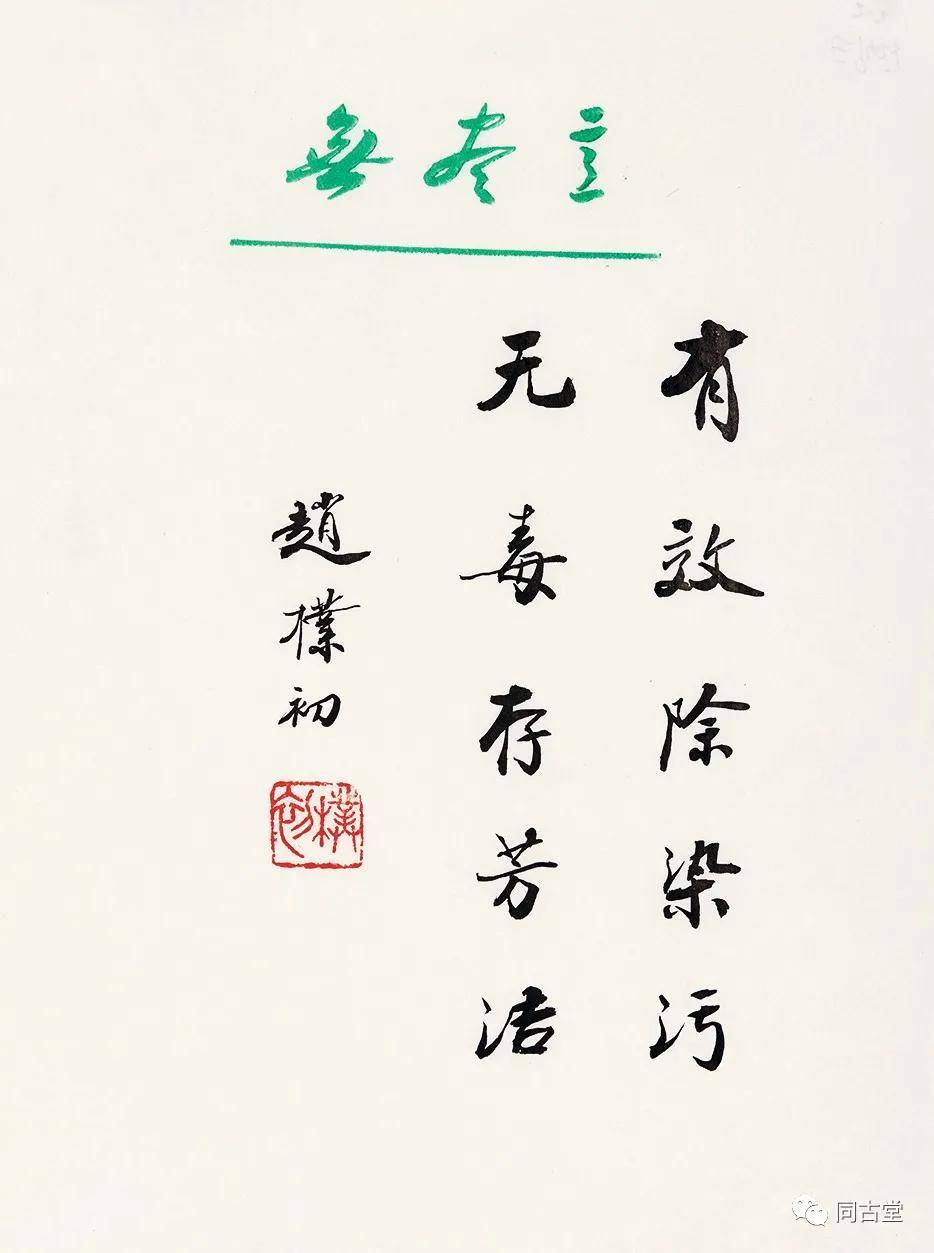 無尽意
有效除染污
无毒存芳洁
趙樸初
樸初
同古堂